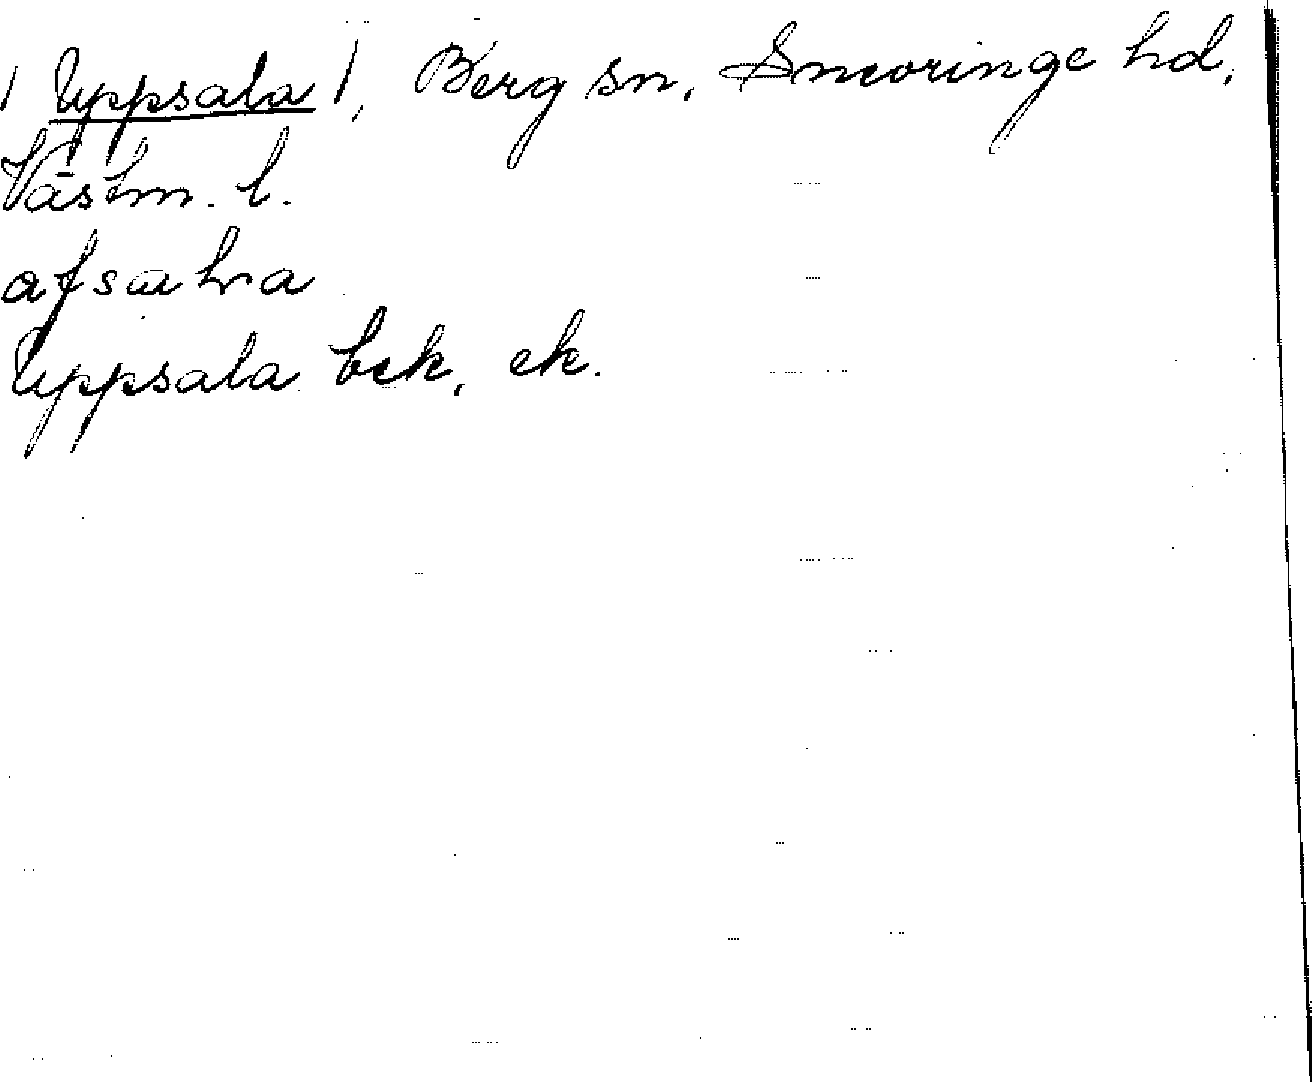 / Uppsala /, Berg sn, Snevringe hd,
Västm. l.
Uppsala bek, ek.